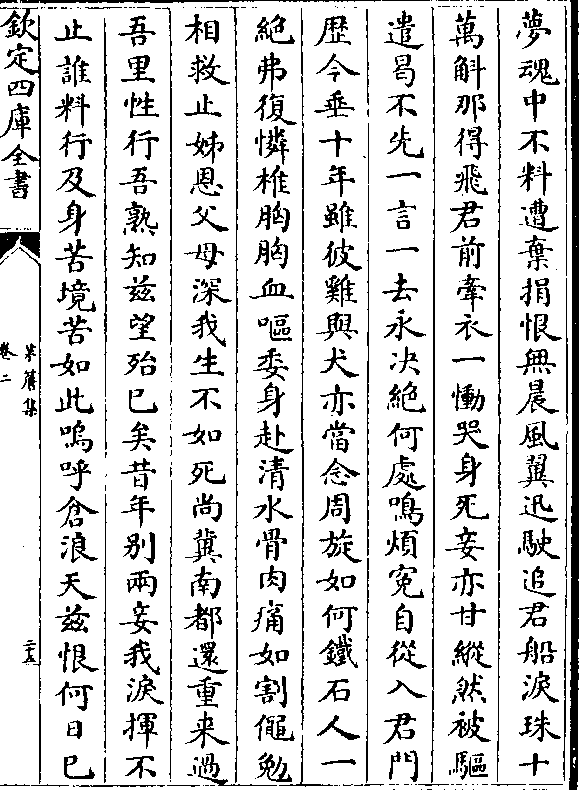 夢魂中不料遭棄捐恨無晨風翼迅駛追君船淚珠十
萬斛那得飛君前牽衣一慟哭身死妾亦甘縱然被驅
遣曷不先一言一去永决絕何處鳴煩寃自從入君門
歴今垂十年雖彼雞與犬亦當念周旋如何鐵石人一
絕弗復憐椎胸胸血嘔委身赴清水骨肉痛如割僶勉
相救止姊恩父母深我生不如死尚冀南都還重来過
吾里性行吾熟知兹望殆已矣昔年別兩妾我淚揮不
止誰料行及身苦境苦如此嗚呼倉浪天兹恨何日已
欽定四庫全書
集
卷二
二五